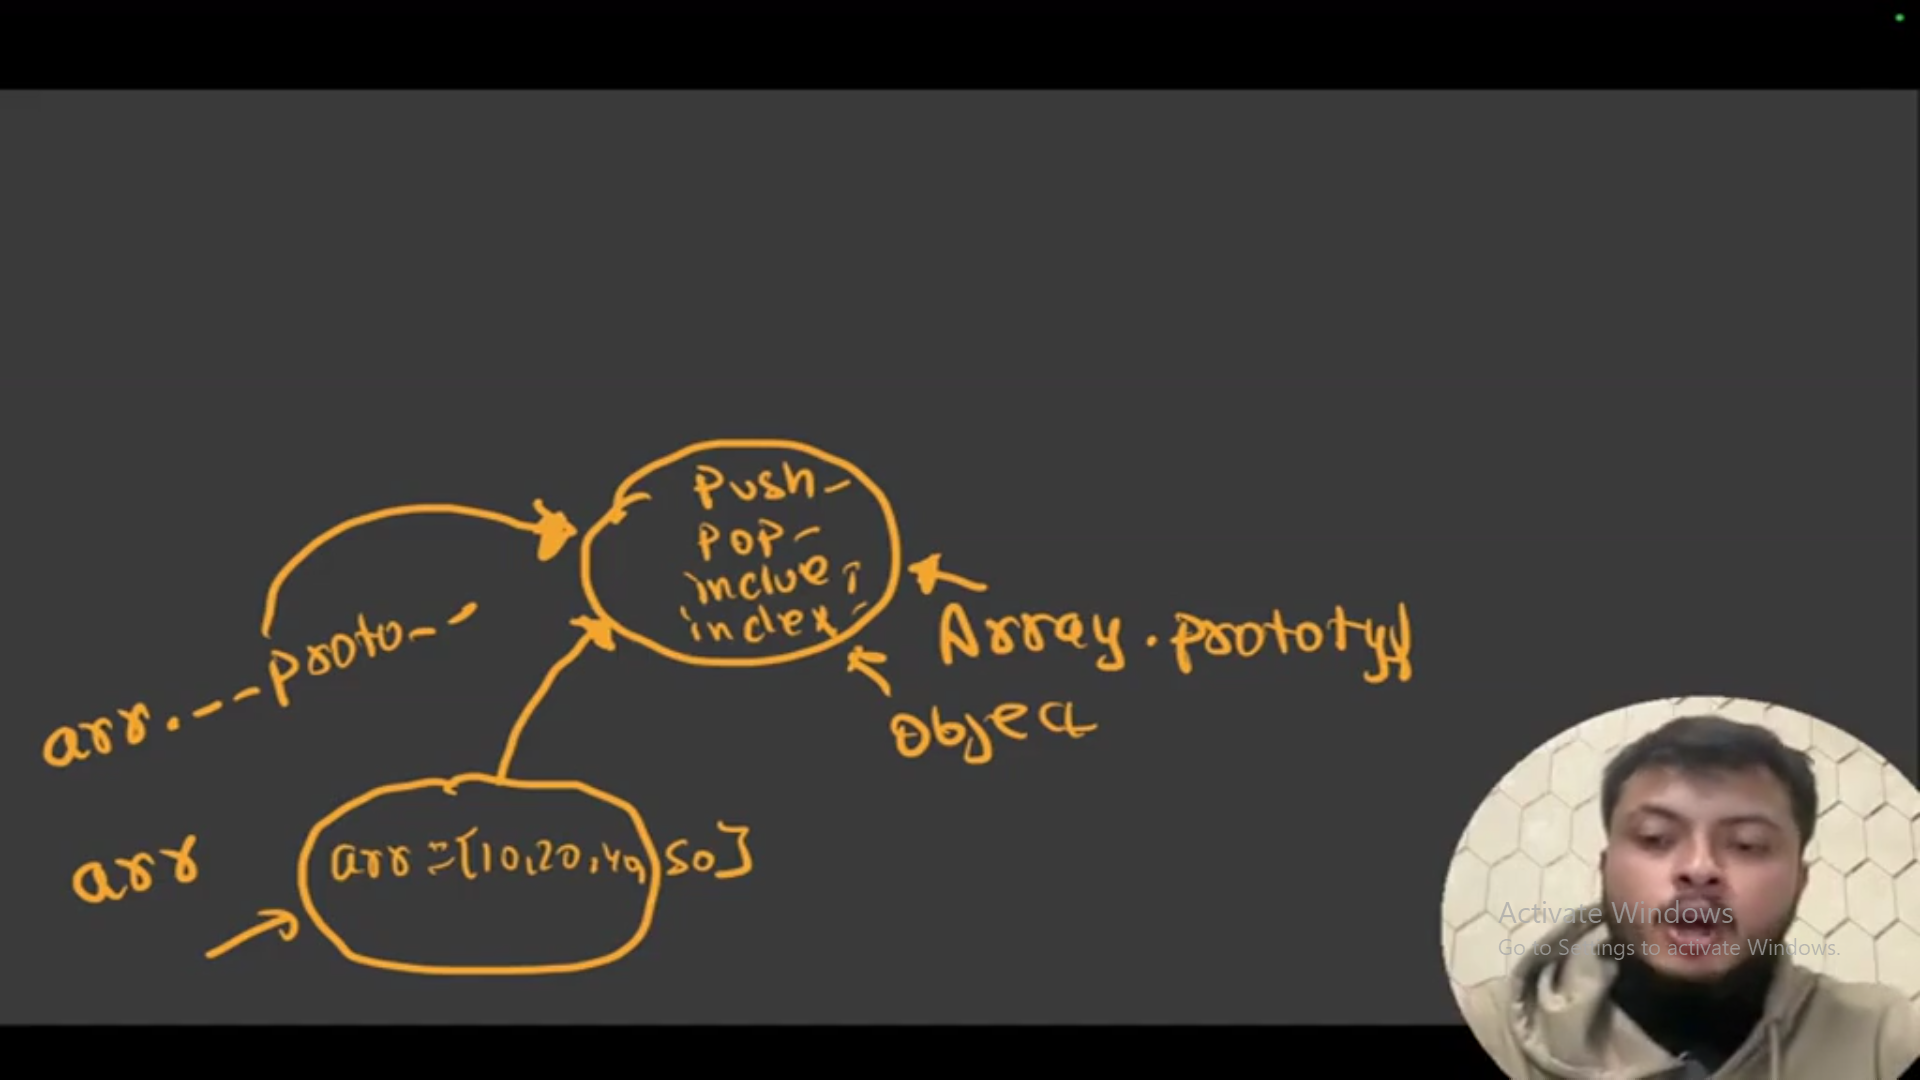 Push-
POP-
inclue,
index-
arr.__proto__
Array.prototyp
Object
arr
arr=[10,20,40,50]
Activate Windows
Go to Settings to activate Windows.